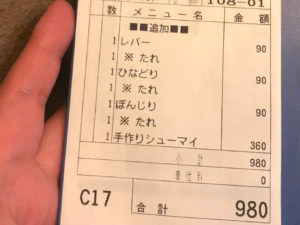 108-01
数 メニュー名 金 額
■■追加■■
1 レバー 90
1 ※ たれ
1 ひなどり 90
1 ※ たれ
1 ぼんじり 90
1 ※ たれ
1 手作りシューマイ 360
小 計 980
奉仕料 0
C17 合 計 980